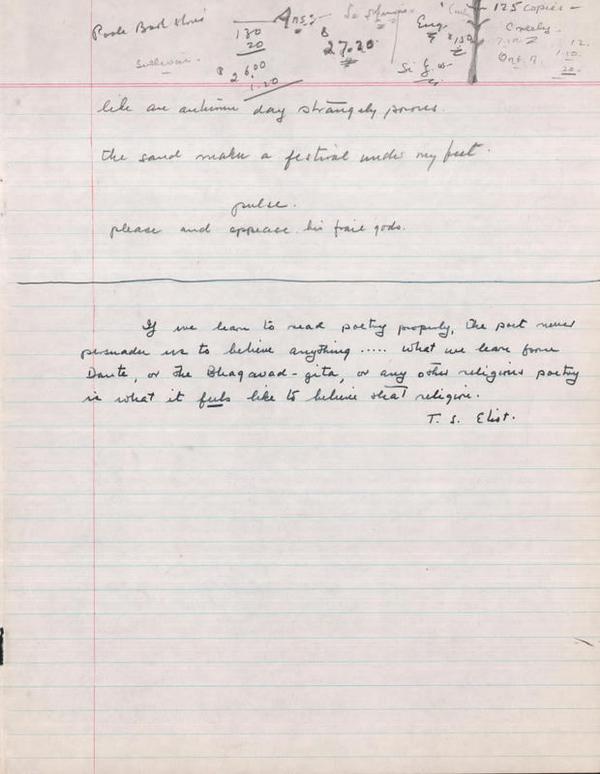 Poole Book Store
130
20
$ 26.00
1.20
Ans:
$ 27.20
Eng.
125 copies -
Sullivan.
like an autumn day strangely porous.
the sand makes a festival under my feet.
pulse.
please and appease his frail gods.
If we learn to read poetry properly, the poet never
persuades us to believe anything ..... what we learn from
Dante, or the Bhagavad-gita, or any other religious poetry
is what it feels like to believe that religion.
T. S. Eliot.